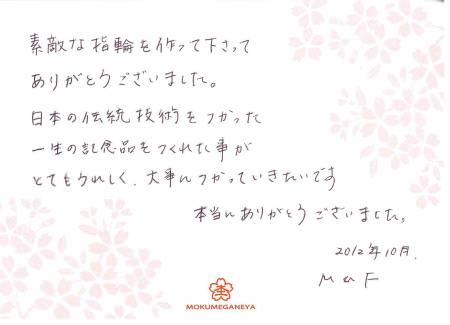 素敵な指輪を作って下さって
ありがとうございました。
日本の伝統技術をつかった
一生の記念品をつくれた事が
とてもうれしく、大事につかっていきたいです
本当にありがとうございました。
2012年10月.
M a F
MOKUMEGANEYA